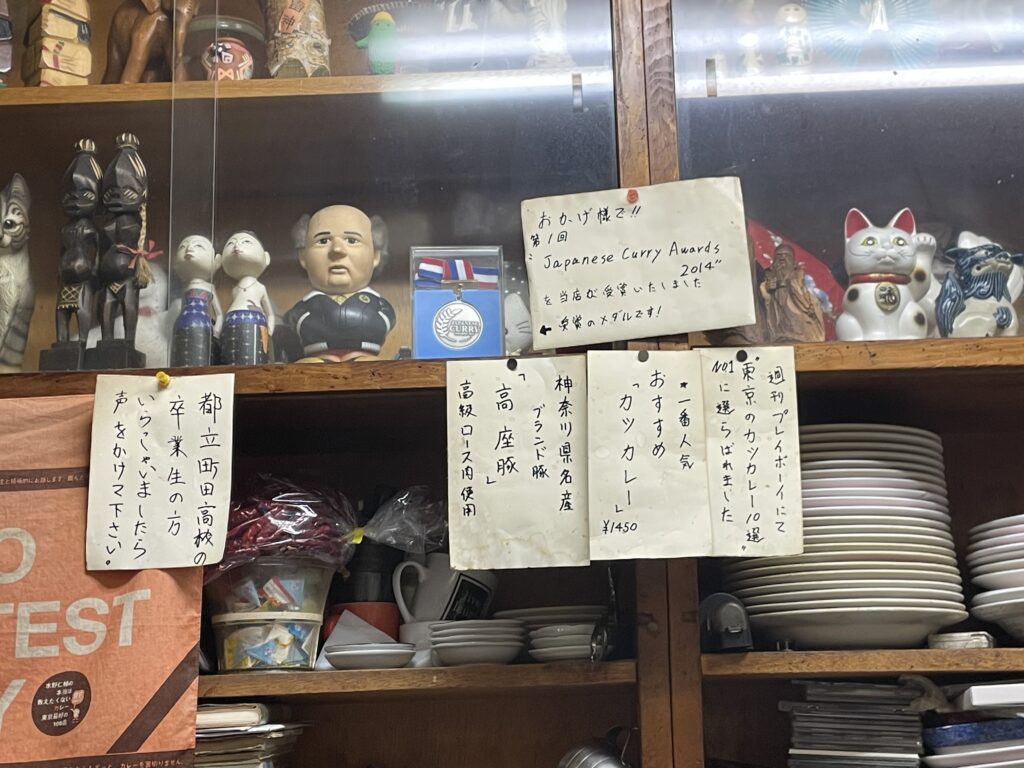 おかげ様で!!
第1回
"Japanese Curry Awards
2014"
を当店が受賞いたしました
← 受賞のメダルです!
JAPANESE
CURRY
都立町田高校の
卒業生の方
いらっしゃいましたら
声をかけて下さい。
神奈川県名産
ブランド豚
「高座豚」
高級ロース肉使用
*一番人気
おすすめ
「カツカレー」
¥1450
週刊プレイボーイにて
"東京のカツカレー10選"
NO1に選らばれました
TEST
水野仁輔の
本当は
教えたくない
カレー
東京最好の
100店